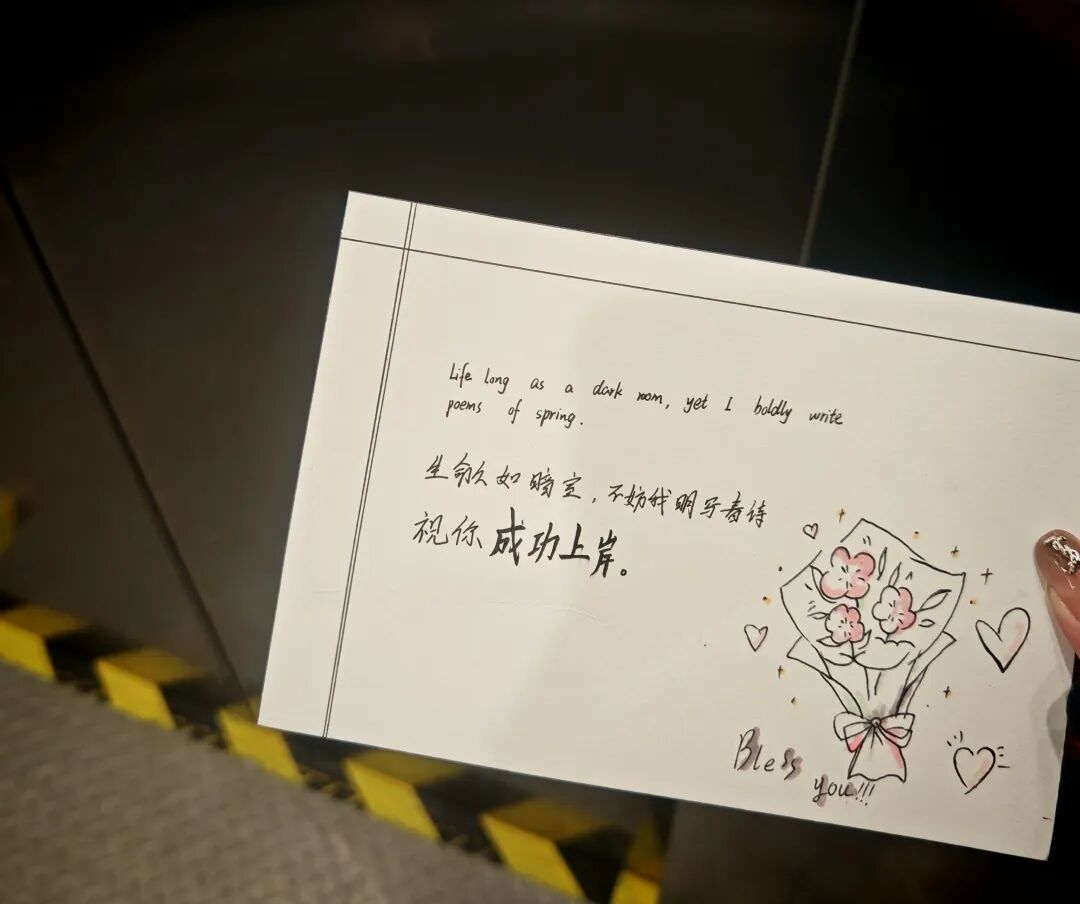 Life long as a dark room, yet I boldly write
poems of spring.
生命久如暗室，不妨我明写春诗
祝你成功上岸。
Bless
you!!!